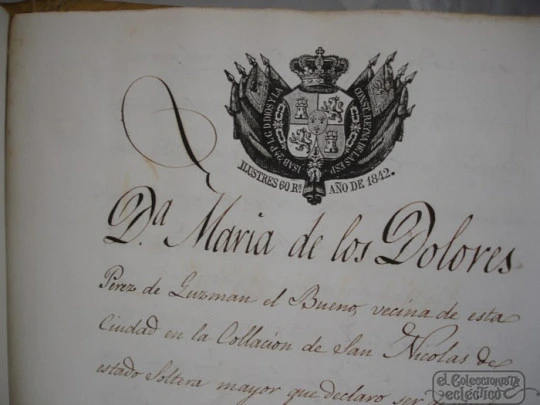 ISAB. 2ª P. L. G. D DIOS Y LA CONST. REYNA DE LAS ESP.
ILUSTRES 60 Rs. AÑO DE 1842.
Da. Maria de los Dolores
Perez de Guzman el Bueno, vecina de esta
Ciudad en la Collacion de San Nicolas de
estado Soltera mayor que declaro ser
el Coleccionista
ecléctico